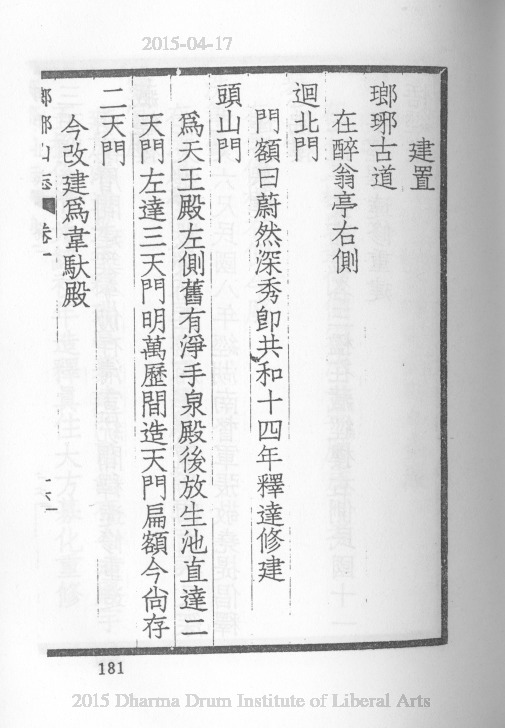 2015-04-17
建置
瑯琊古道
在醉翁亭右側
迴北門
門額曰蔚然深秀卽共和十四年釋達修建
頭山門
爲天王殿左側舊有淨手泉殿後放生池直達二
天門左達三天門明萬歷間造天門扁額今尙存
二天門
今改建爲韋馱殿
瑯琊山志 卷一 十六
181
2015 Dharma Drum Institute of Liberal Arts